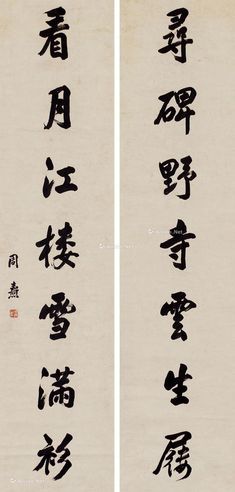 尋碑野寺雲生屐
看月江樓雪滿衫
周燾